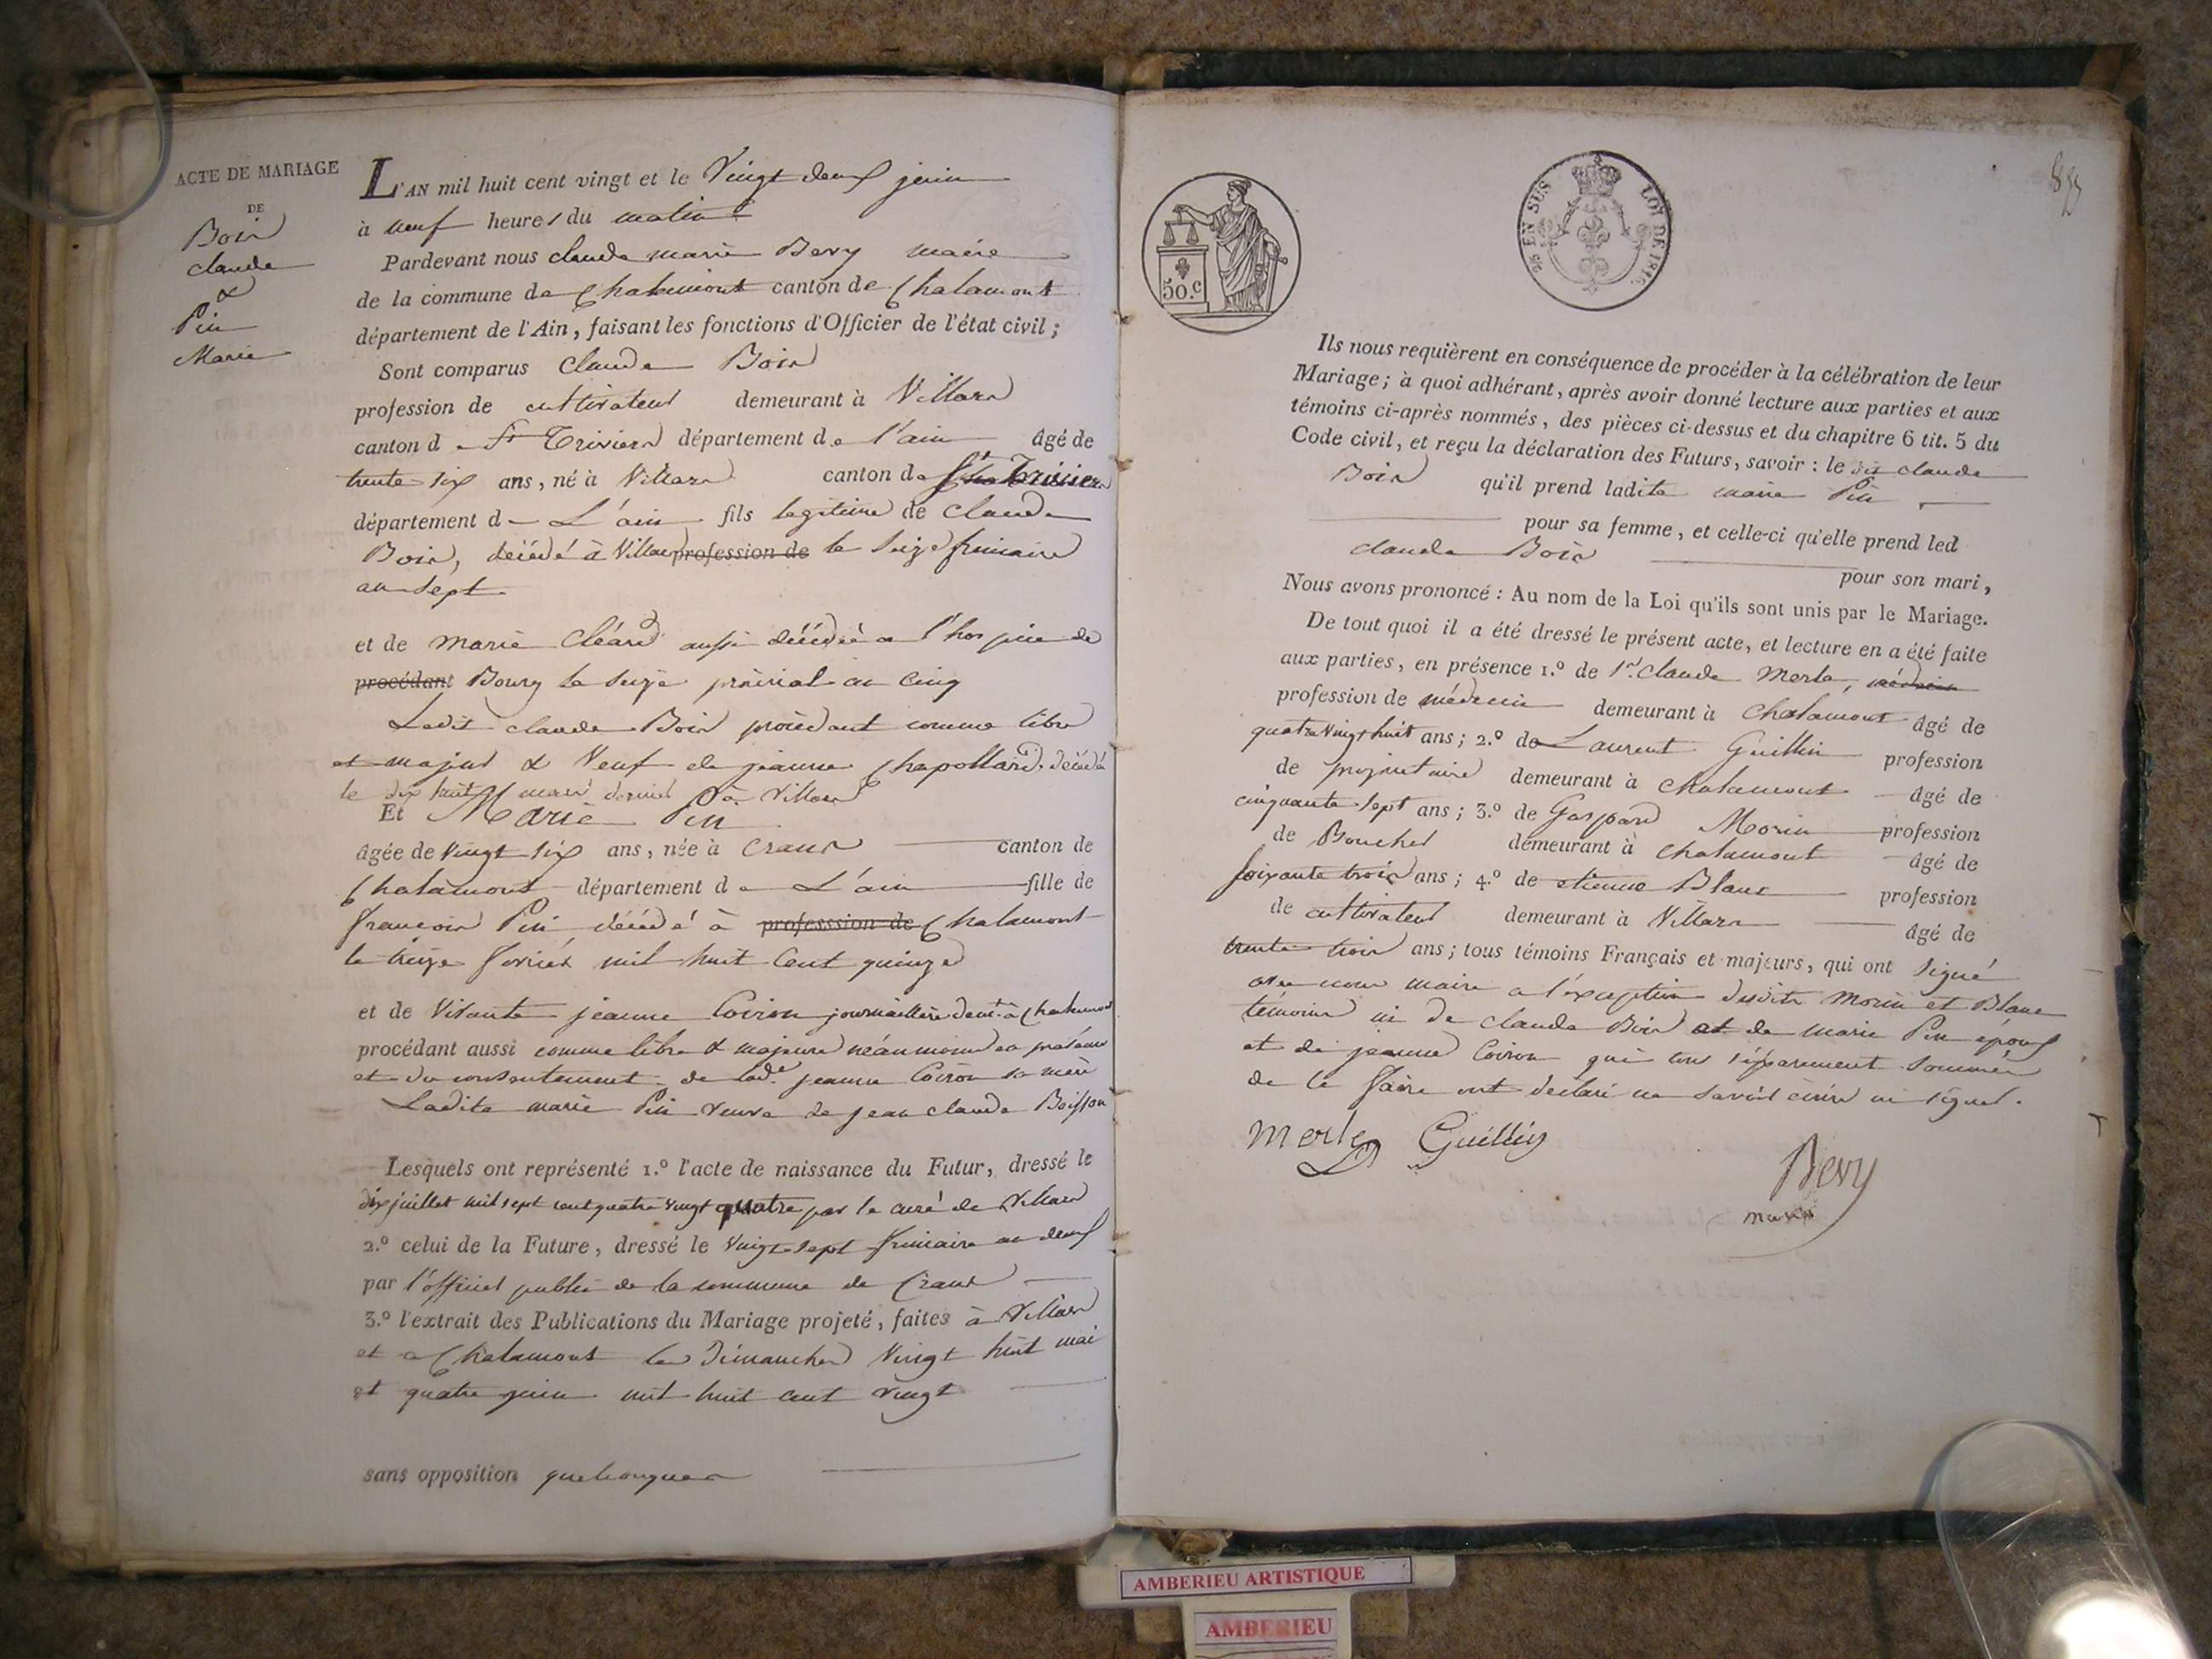 ACTE DE MARIAGE
DE
Bois
claude
&
Pin
Marie
L'AN mil huit cent vingt et le Vingt deux juin
à neuf heures du matin
Pardevant nous claude marie Bevy maire
de la commune de Chalamont canton de Chalamont
département de l'Ain, faisant les fonctions d'Officier de l'état civil ;
Sont comparus Claude Bois
profession de cultivateur demeurant à Villars
canton de St Triviers département de l'ain âgé de
trente six ans, né à Villars canton de St Triviers
département de L'ain fils legitime de Claude
Bois, décédé à Villars profession de le seize frimaire
an sept
et de marie Cléard aussi décédée a l'hospice de
procédant Bourg le seize prairial an cinq
Ledit claude Bois procédant comme libre
et majeur & Veuf de jeanne Chapolland, décédé
le dix huit mars dernier à Villars
Et Marie Pin
âgée de vingt six ans, née à Crans canton de
Chalamont département de L'ain fille de
françois Pin décédé à professsion de Chalamont
le treize fevrier mil huit cent quinze
et de Vivante jeanne Coiron journaillère demt. à Chalamont
procédant aussi comme libre & majeure néanmoins en présence
et du consentement de lade. jeanne Coiron sa mère
Ladite marie Pin veuve de jean claude Boisson
Lesquels ont représenté 1.º l'acte de naissance du Futur, dressé le
dix juillet mil sept cent quatre vingt quatre par le curé de Villars
2.º celui de la Future, dressé le Vingt sept frimaire an deux
par l'officier public de la commune de Crans
3.º l'extrait des Publications du Mariage projeté, faites à Villars
et a Chalamont les Dimanches Vingt huit mai
et quatre juin mil huit cent vingt
sans opposition quelconque
50.C
25 EN SUS LOI DE 1816
Ils nous requièrent en conséquence de procéder à la célébration de leur
Mariage; à quoi adhérant, après avoir donné lecture aux parties et aux
témoins ci-après nommés, des pièces ci-dessus et du chapitre 6 tit. 5 du
Code civil, et reçu la déclaration des Futurs, savoir : le dit claude
Bois qu'il prend ladite marie Pin
pour sa femme, et celle-ci qu'elle prend led
claude Bois
pour son mari,
Nous avons prononcé : Au nom de la Loi qu'ils sont unis par le Mariage.
De tout quoi il a été dressé le présent acte, et lecture en a été faite
aux parties, en présence 1.º de Sr. Claude Merle, médecin
profession de médecin demeurant à Chalamont âgé de
quatre vingt huit ans ; 2.º de Laurent Guillin profession
de propriétaire demeurant à Chalamont âgé de
cinquante sept ans ; 3.º de Gaspard Morin profession
de Boucher demeurant à Chalamont âgé de
soixante trois ans ; 4.º de etienne Blanc profession
de cultivateur demeurant à Villars âgé de
trente trois ans ; tous témoins Français et majeurs, qui ont signé
avec nous maire a l'exception desdits Morin et Blanc
témoins ni de claude Bois et de marie Pin époux
et de jeanne Coiron qui tous séparement sommés
de le faire ont declaré ne savoir écrire ni signer.
Merle Guillin
Bevy
maire
AMBERIEU ARTISTIQUE
AMBERIEU